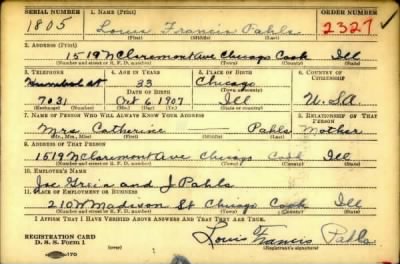 SERIAL NUMBER 1. NAME (Print) ORDER NUMBER
1805 Louis Francis Pahls 2327
(First) (Middle) (Last)
2. ADDRESS (Print)
1519 N Claremont Ave Chicago Cook Ill
(Number and street or R. F. D. number) (Town) (County) (State)
3. TELEPHONE 4. AGE IN YEARS 5. PLACE OF BIRTH 6. COUNTRY OF CITIZENSHIP
Humboldt 33 Chicago
DATE OF BIRTH (Town or county)
7031 Oct 6, 1907 Ill U.S.A
7. NAME OF PERSON WHO WILL ALWAYS KNOW YOUR ADDRESS 8. RELATIONSHIP OF THAT PERSON
Mrs Catherine — Pahls Mother
(Mr., Mrs., Miss) (First) (Middle) (Last)
9. ADDRESS OF THAT PERSON
1519 N Claremont Ave Chicago Cook Ill
(Number and street or R. F. D. number) (Town) (County) (State)
10. EMPLOYER'S NAME
Joe and J Pahls
11. PLACE OF EMPLOYMENT OR BUSINESS
210 W Madison St Chicago Cook Ill
(Number and street or R. F. D. number) (Town) (County) (State)
I AFFIRM THAT I HAVE VERIFIED ABOVE ANSWERS AND THAT THEY ARE TRUE.
REGISTRATION CARD
D. S. S. Form 1 Louis Francis Pahls
(Registrant's signature)